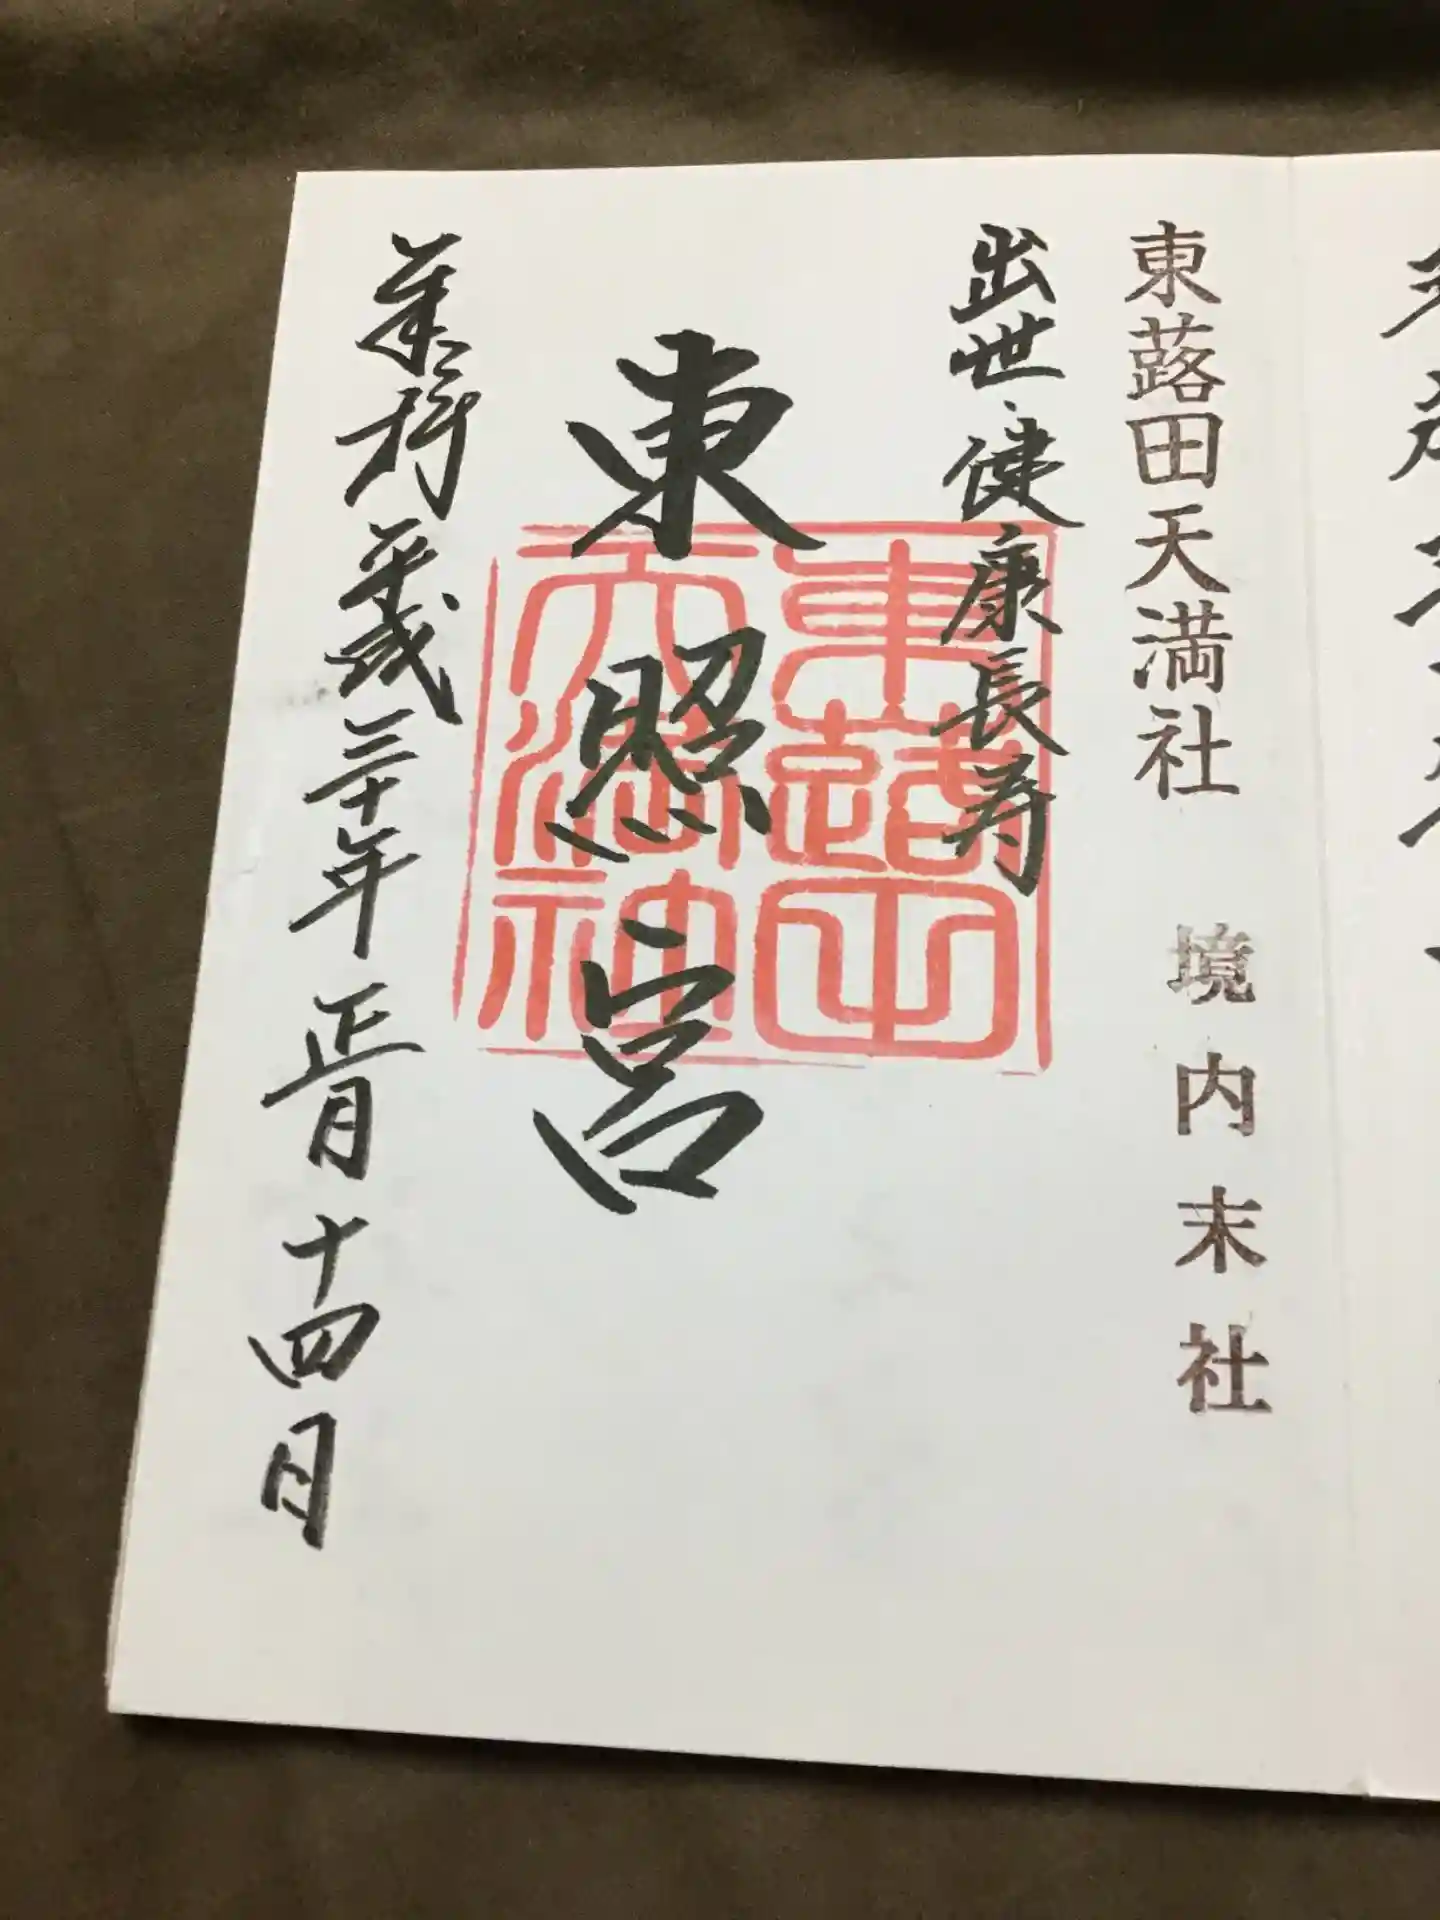 東蕗田天満社 境内末社
出世健康長寿
東照宮
業務平成三十年正月十四日
東蕗田
天満社